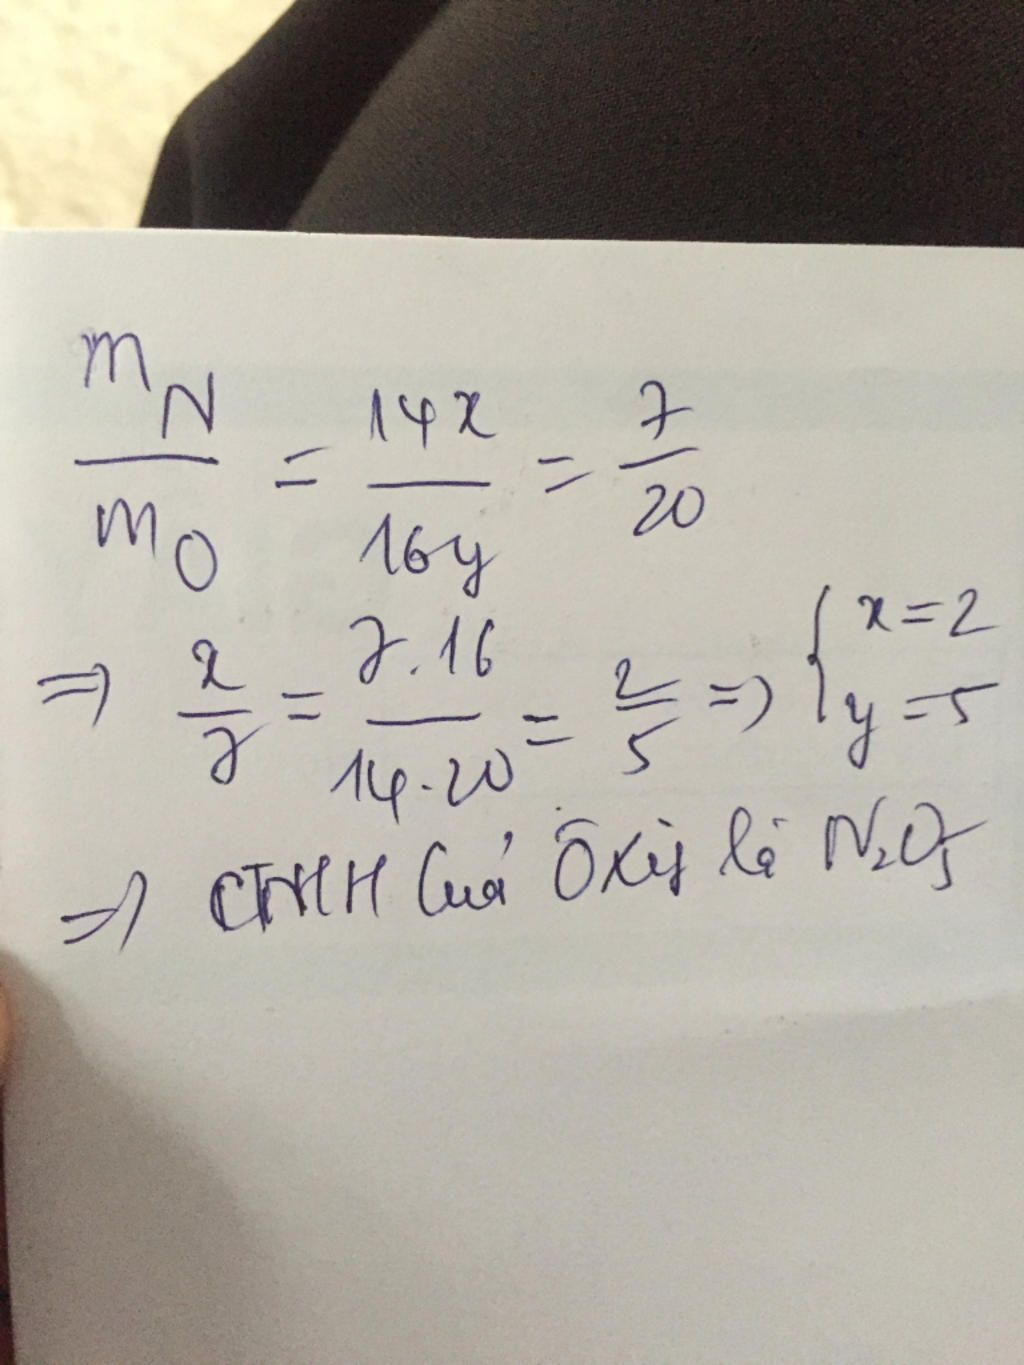 m_N / m_O = 14x / 16y = 7 / 20
=> x / y = 7.16 / 14.20 = 2 / 5 => { x = 2 y = 5
=> CTHH Của Ôxit là N₂O₅